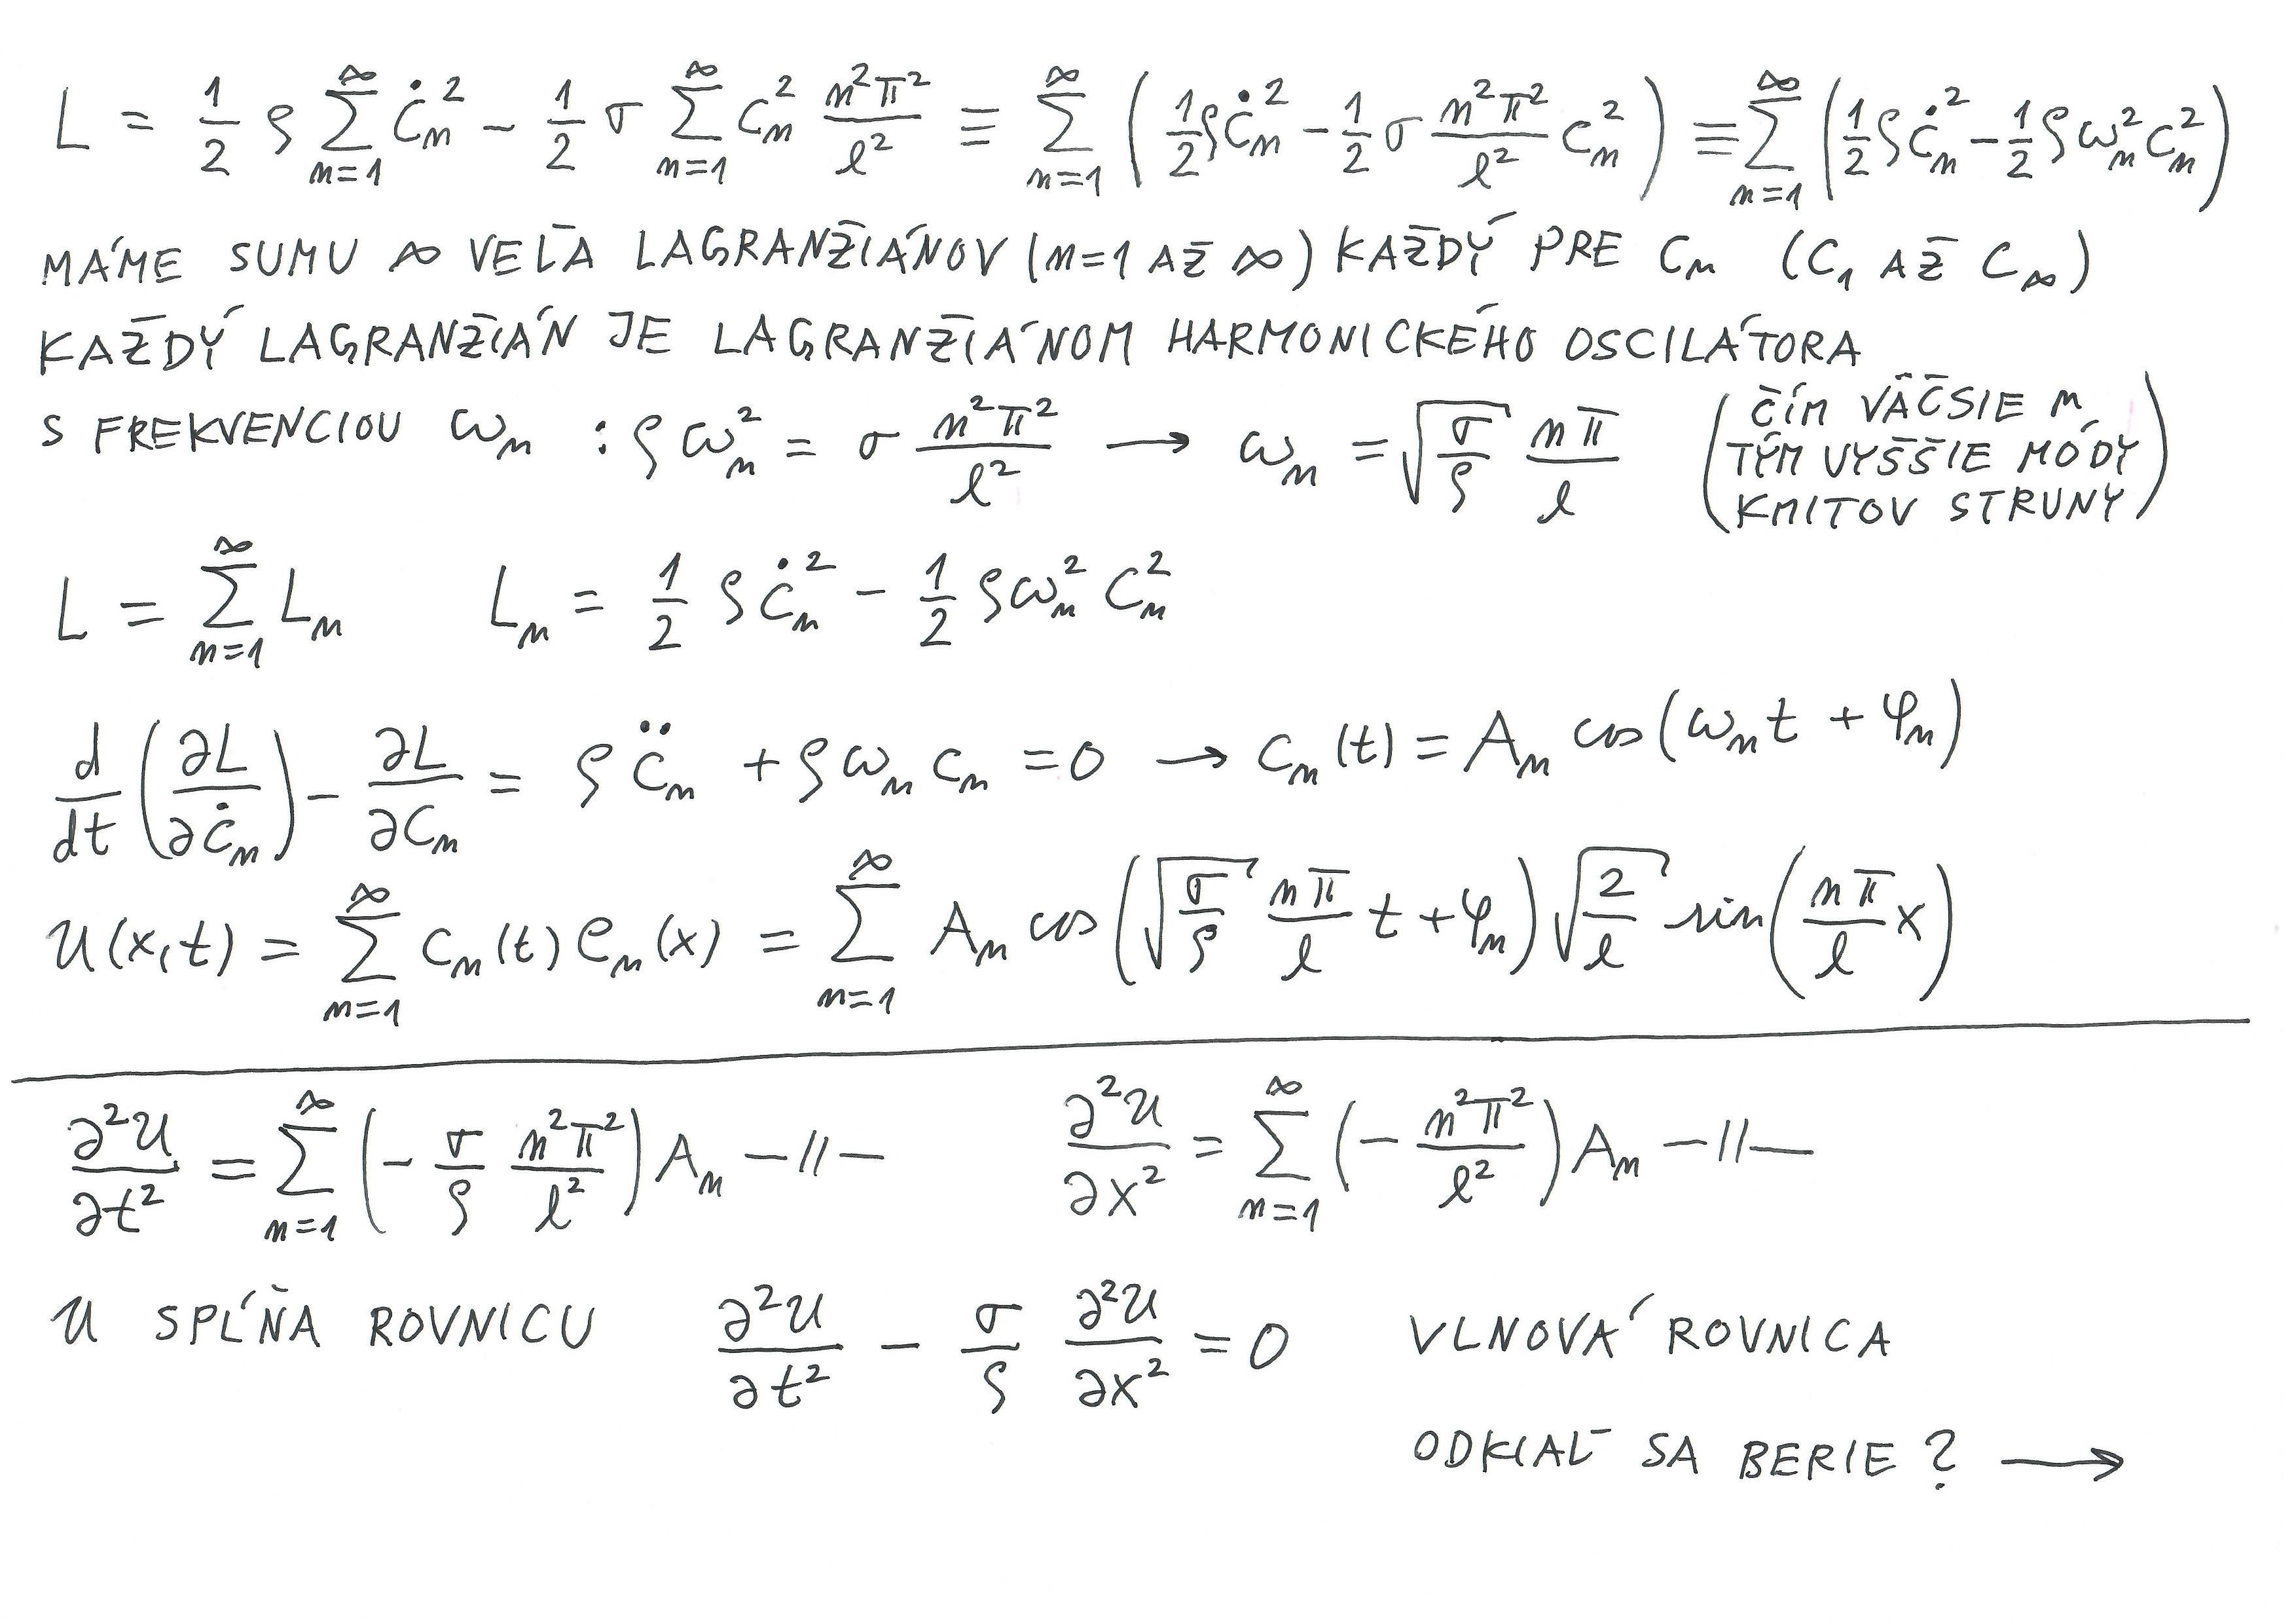 L = 1/2 ρ ∑_{n=1}^{∞} ċ_n² − 1/2 σ ∑_{n=1}^{∞} c_n² n²π²/ℓ² ≡ ∑_{n=1}^{∞} (1/2 ρ ċ_n² − 1/2 σ n²π²/ℓ² c_n²) ≡ ∑_{n=1}^{∞} (1/2 ρ ċ_n² − 1/2 ρ ω_n² c_n²)
MÁME SUMU ∞ VEĽA LAGRANŽIÁNOV (n=1 AŽ ∞) KAŽDÝ PRE c_n (c_1 AŽ c_∞)
KAŽDÝ LAGRANŽIÁN JE LAGRANŽIÁNOM HARMONICKÉHO OSCILÁTORA
S FREKVENCIOU ω_n : ρ ω_n² = σ n²π²/ℓ² → ω_n = √(σ/ρ) nπ/ℓ (ČÍM VÄČŠIE n,
TÝM VYŠŠIE MÓDY
KMITOV STRUNY)
L = ∑_{n=1}^{∞} L_n L_n = 1/2 ρ ċ_n² − 1/2 ρ ω_n² c_n²
d/dt (∂L/∂ċ_n) − ∂L/∂c_n = ρ c̈_n + ρ ω_n c_n = 0 → c_n(t) = A_n cos(ω_n t + φ_n)
u(x,t) = ∑_{n=1}^{∞} c_n(t) e_n(x) = ∑_{n=1}^{∞} A_n cos(√(σ/ρ) nπ/ℓ t + φ_n) √(2/ℓ) sin(nπ/ℓ x)
∂²u/∂t² = ∑_{n=1}^{∞} (− σ/ρ n²π²/ℓ²) A_n —//— ∂²u/∂x² = ∑_{n=1}^{∞} (− n²π²/ℓ²) A_n —//—
u SPĹŇA ROVNICU ∂²u/∂t² − σ/ρ ∂²u/∂x² = 0 VLNOVÁ ROVNICA
ODKIAĽ SA BERIE ? →